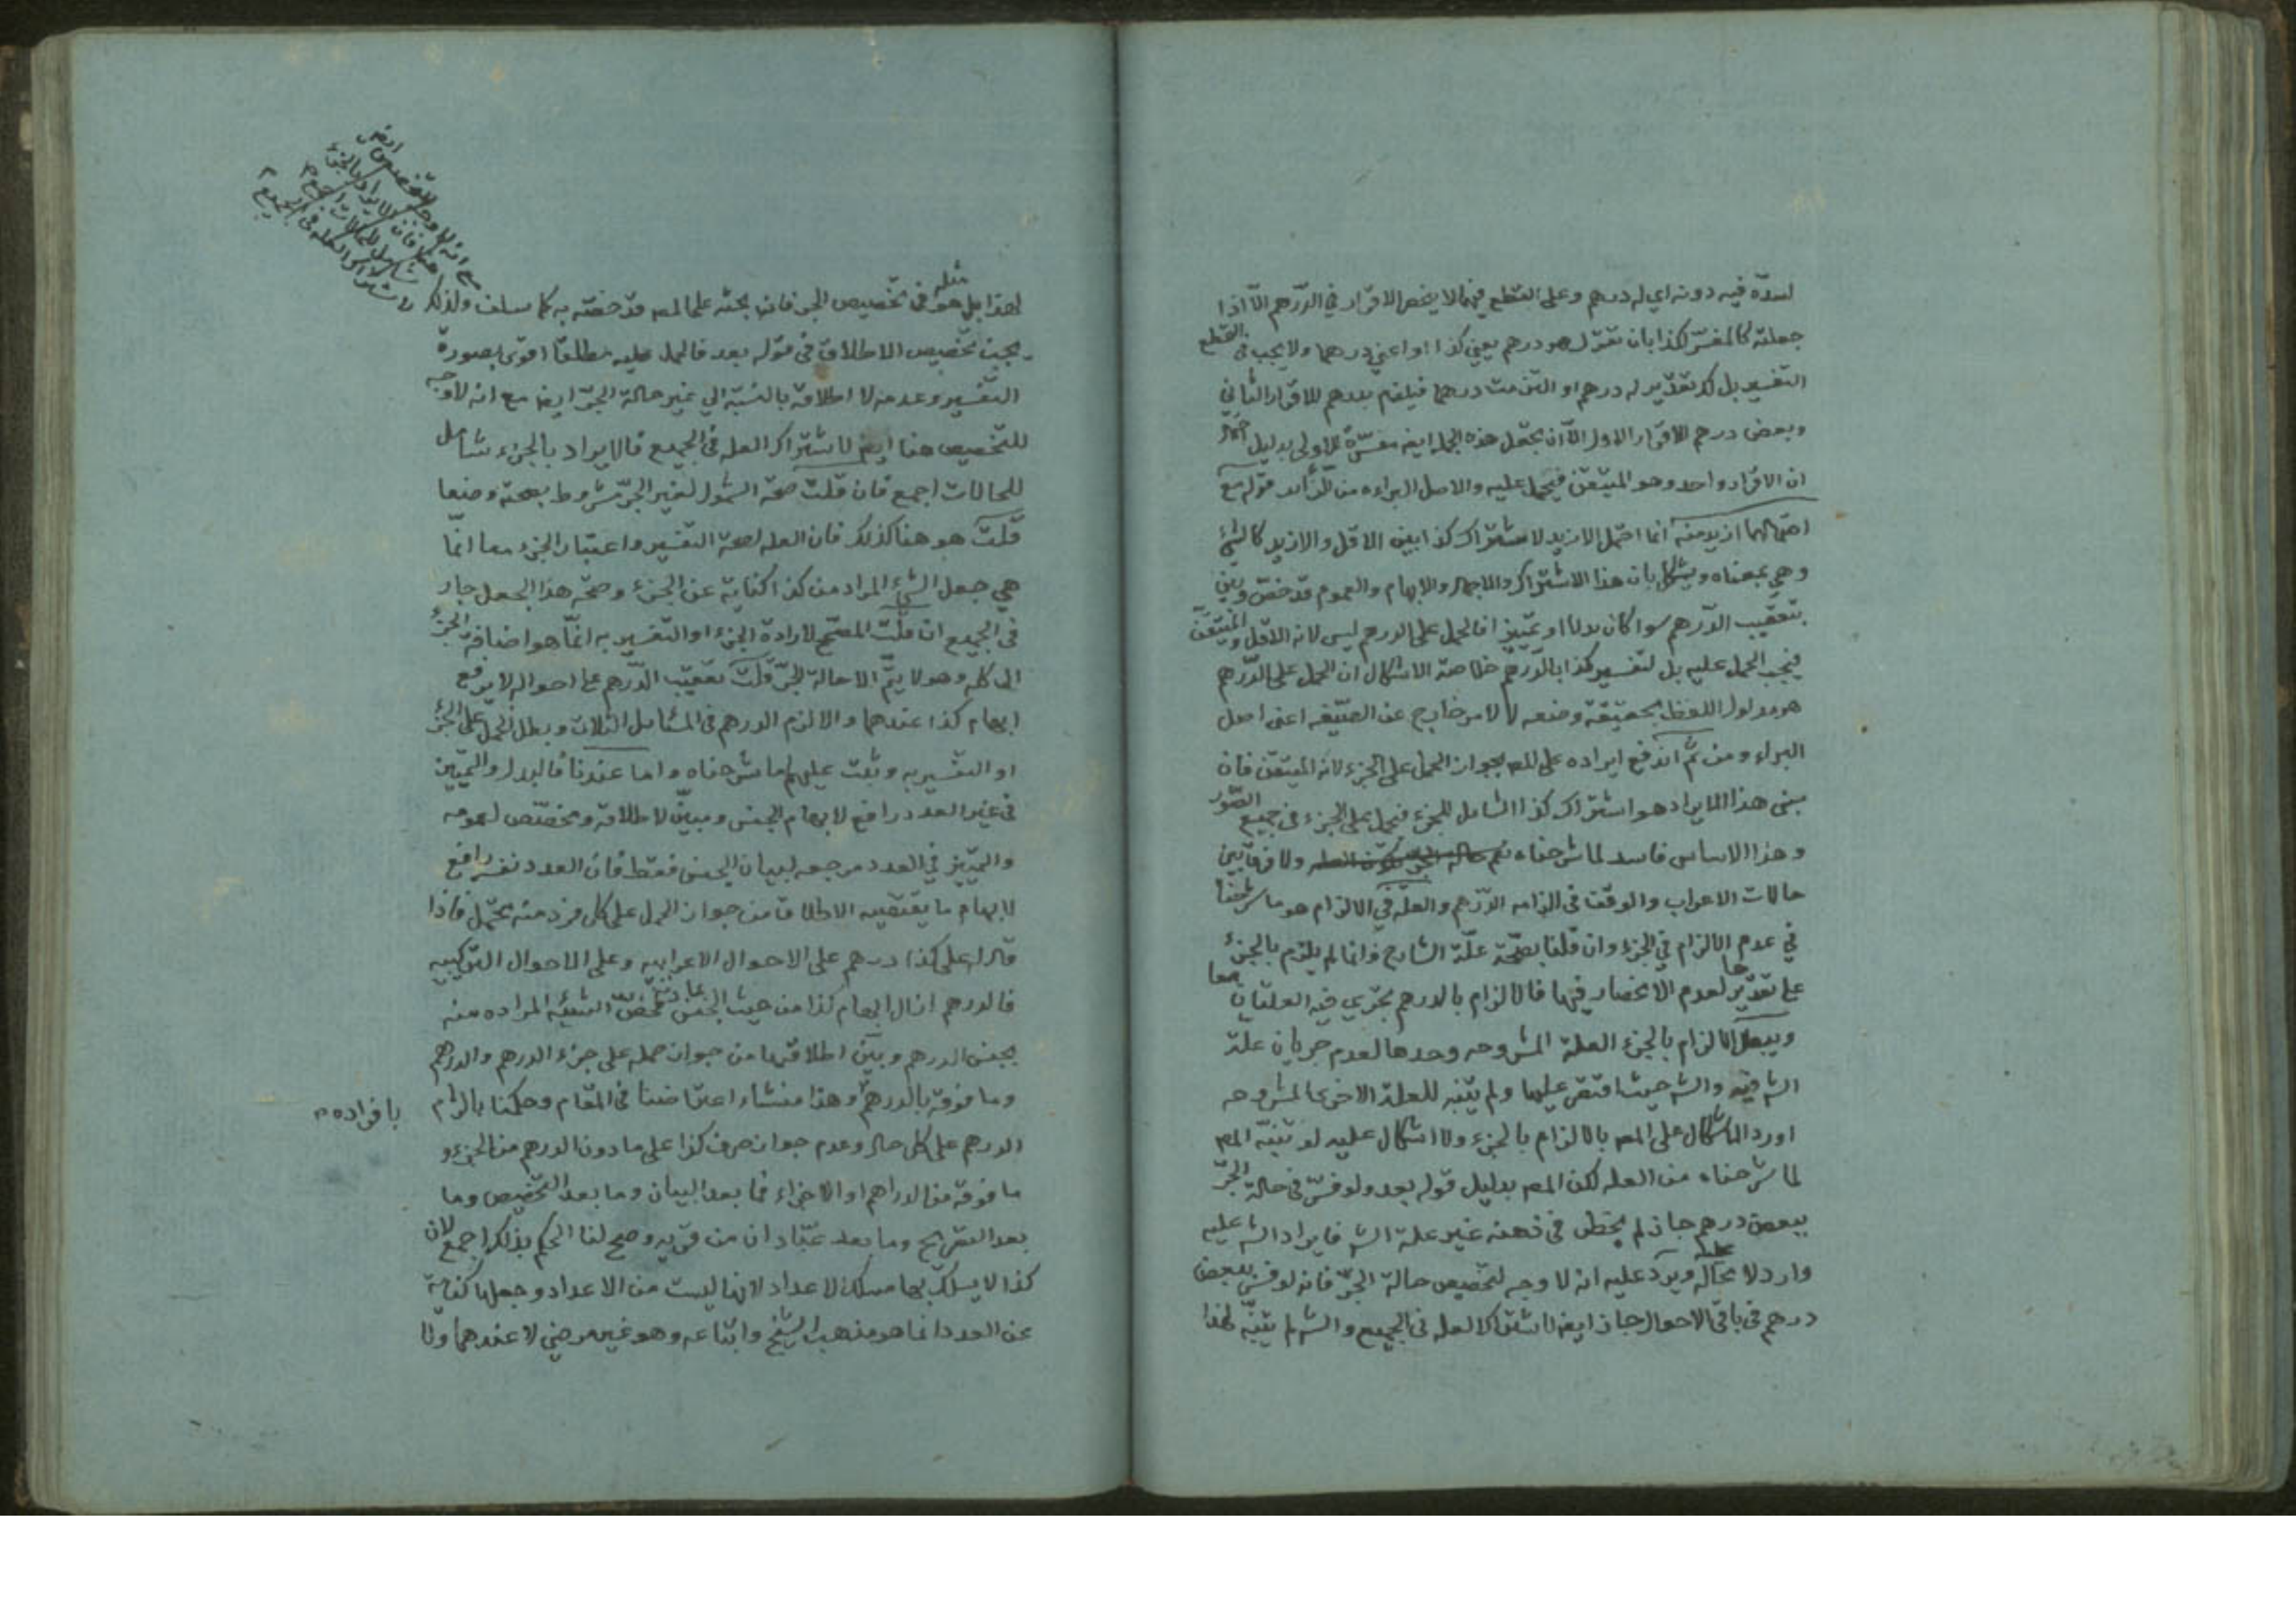 لسدّه فيه دونه اي له درهم وعلى القطع فيهما لا يخص الاقرار في الدرهم الّا اذا
جعلته كالمفسّر لكذا بان تقول هو درهم يعني كذا او اعني درهما ولا يجب في القطع
التفسير بل لك تقدير له درهم او التزمت درهما فيلزم بدرهم للاقرار الثاني
وبعض درهم للاقرار الاول الّا ان يجعل هذه الجملة ايض مفسّرة للاولى بدليل
ان الاقرار واحد وهو المتيقن فيحمل عليه والاصل البراءه من الزّائد قوله مع
احتمالهما ازيد منه انما احتمل الازيد لاشتراك كذا بين الاقل والازيد كالشئ
وهي بمعناه ويشكل بان هذا الاشتراك والاجمال والابهام والعموم قد خصّ وبيّن
بتعقيب الدّرهم سوا كان بدلا او تمييز افالحمل على الدرهم ليس لانه الاقل والمتيقّن
فيجب الحمل عليه بل لتفسير كذا بالدّرهم خلاصة الاشكال ان الحمل على الدّرهم
هو مدلول اللفظ بحقيقة وضعه لا لامر خارج عن الصّيغه اعنى اصل
البراء ومن ثمّ اندفع ايراده على المصه بجواز الحمل على الجزء لانه المتيقن فان
مبنى هذا الايراد هو اشتراك كذا الشامل للجزء فيحمل على الجزء في جميع الصّور
وهذا الاساس فاسد لما شرحناه ولا فرق بين
حالات الاعراب والوقف في الزامه الدّرهم والعلّة في الالزام هو ما شرحنا
في عدم الالزام في الجزء وان قلنا بصحّة علّة الشارح وانما لم يلزم بالجزء
على تقديرها لعدم الانحصار فيها فالالزام بالدرهم يجري فيه العلتان معا
ويبطل الالزام بالجزء العلة المشروحه وحدها لعدم جريان علّة
الش فيه والش حيث اقتصر عليها ولم يتنبه للعلة الاخرى المشروحه
اورد الاشكال على المصه بالالزام بالجزء ولا اشكال عليه لو تنبّه المصه
لما شرحناه من العله لكن المصه بدليل قوله بعد ولو فسّر في حالة الجرّ
ببعض درهم جاز لم يخطر في ذهنه غير علة الش فايراد الش عليه
وارد لا محاله ويرد عليه انه لا وجه لتخصيص حالة الجرّ فانه لو فسر ببعض
درهم في باقي الاحوال جاز ايض لاشتراك العله في الجميع والش لم يتنبّه لهذا
لهذا بل هو مثله في تخصيص الجر فان بحثه على المصه قد خصّه به كما سلف ولذلك
يجب تخصيص الاطلاق في قوله بعد فالحمل عليه مطلقا اقوى بصورة
التفسير وعدمه لا اطلاقه بالنسبة الي غير حالة الجرّ ايض مع انه لا وجه
للتخصيص هنا ايض لاشتراك العله في الجميع فالايراد بالجزء شامل
للحالات اجمع فان قلت صحة الشمول لغير الجرّ مشروط بصحة وضعا
قلت هو هنا كذلك فان العله لصحة التفسير واعتبار الجزء معا انّما
هي جعل الشئ المراد من كذا كناية عن الجزء وصحّة هذا الجعل جار
في الجميع ان قلت المصحّح لارادة الجزء او التفسير به انّما هو اضافة الجزء
الى كله وهو لا يتمّ الا حالة الجرّ قلت تعقيب الدّرهم على احواله لا يرفع
ابهام كذا عندهما والا لزم الدرهم في المسائل الثلاث وبطل الحمل على الجزء
او التفسير به وثبت عليهم ما شرحناه واما عندنا فالبدل والتمييز
في غير العدد رافع لابهام الجنس ومبيّن لاطلاقه ومخصّص لعمومه
والتمييز في العدد مرجعه لبيان الجنس فقط فان العدد نفسه رافع
لابهام ما يقتضيه الاطلاق من جواز الحمل على كل فرد منه يحتمل فاذا
قال له على كذا درهم على الاحوال الاعرابيه وعلى الاحوال التركيبيه
فالدرهم ازال ابهام كذا من حيث الجنس فخصّ الشيئيه المراده منه
بجنس الدرهم وبيّن اطلاقها من جواز حمله على جزء الدرهم والدرهم
وما فوقه بالدرهم وهذا منشاء اعتراضنا في المقام وحكمنا بالزام
بافراده
الدرهم على كل حال وعدم جواز صرف كذا على ما دون الدرهم من الجزء و
ما فوقه من الدراهم او الاجزاء فما بعد البيان وما بعد التخصيص وما
بعد التصريح وما بعد عبّادان من قريه وصح لنا الحكم بذلك اجمع لان
كذا لا يسلك بها مسلك الاعداد لانها ليست من الاعداد وجعلها كناية
عن العدد انما هو مذهب الشيخ واتباعه وهو غير مرضي لا عندهما ولا